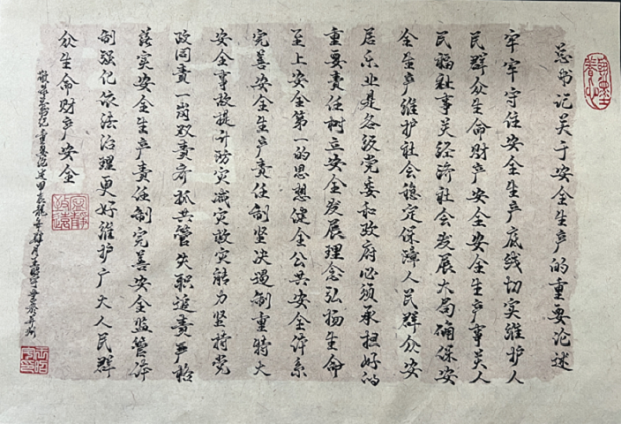 总书记关于安全生产的重要论述
牢牢守住安全生产底线切实维护人
民群众生命财产安全安全生产事关人
民福祉事关经济社会发展大局确保安
全生产维护社会稳定保障人民群众安
居乐业是各级党委和政府必须承担好的
重要责任树立安全发展理念弘扬生命
至上安全第一的思想健全公共安全体系
完善安全生产责任制坚决遏制重特大
安全事故提升防灾减灾救灾能力坚持党
政同责一岗双责齐抓共管失职追责严格
落实安全生产责任制完善安全监管体
制强化依法治理更好维护广大人民群
众生命财产安全
敬录总书记重要论述
宁静致远